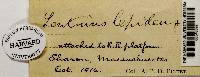 Lentinus lepideus
attached to R.R. platform
Sharon, Massachusetts
Oct. 1916.
HARVARD
Coll. A. P. D.